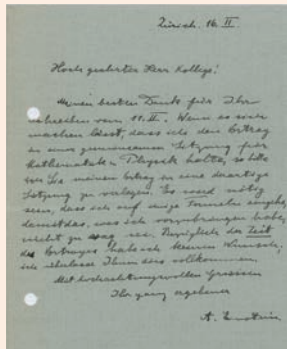 Zürich. 16. II.
Hoch geehrter Herr Kollege!
Meinen besten Dank für Ihr
Schreiben vom 11. II. Wenn es sich
machen lässt, dass ich den Vortrag
in einer gemeinsamen Sitzung für
Mathematik & Physik halte, so bitte
ich Sie, meinen Vortrag in eine derartige
Sitzung zu verlegen. Es wird nötig
sein, dass ich auf einige Formeln eingehe,
damit das, was ich vorzubringen habe,
nicht zu vag sei. Bezüglich der Zeit
des Vortrages habe ich keinen Wunsch,
ich überlasse Ihnen dies vollkommen.
Mit hochachtungsvollen Grüssen
Ihr ganz ergebener
A. Einstein